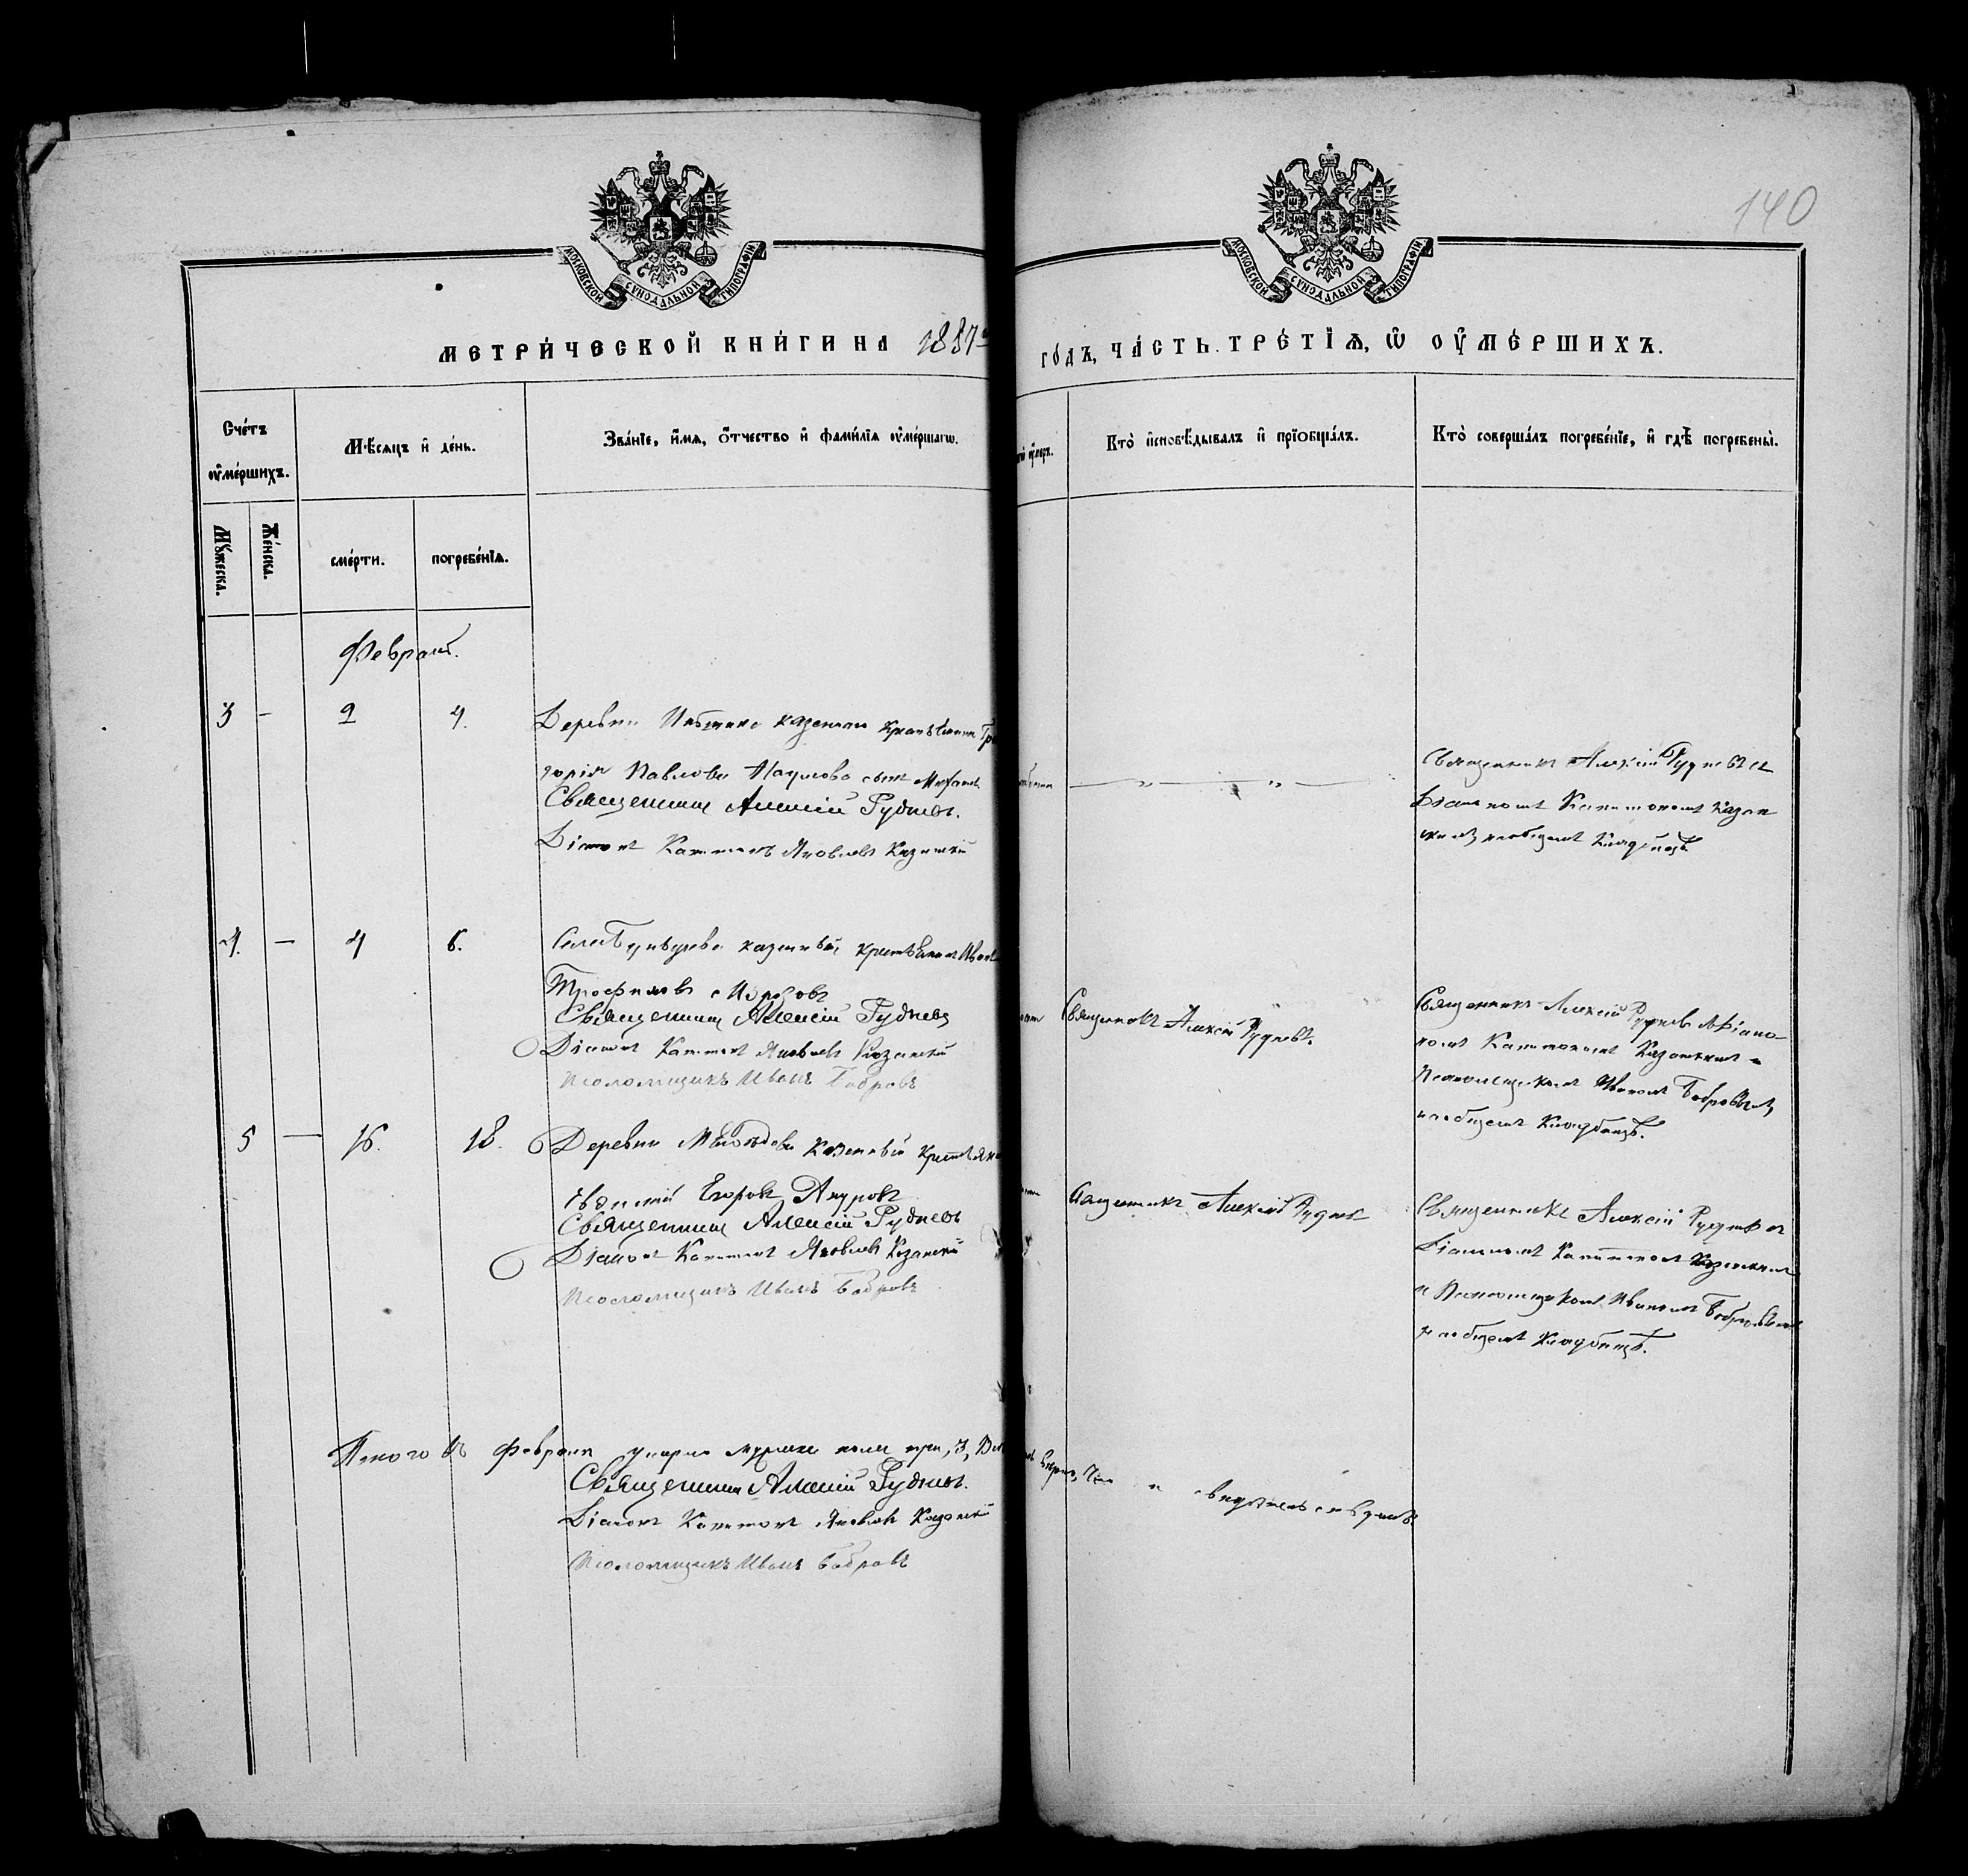 140
МОСКОВСКОЙ СѴНОДАЛЬНОЙ ТИПОГРАФІИ
МОСКОВСКОЙ СѴНОДАЛЬНОЙ ТИПОГРАФІИ
МЕТРИ́ЧЕСКОЙ КНИ́ГИ НА 1887 ГО́ДЪ, ЧА́СТЬ ТРЕ́ТІѦ, Ѿ ОУ҆МЕ́РШИХЪ.
Сче́тъ
оу҆ме́ршихъ.
Мѣ́сяцъ и҆ де́нь.
Зва́нїе, и҆́мѧ, ѻ҆́тчество и҆ фами́лїѧ оу҆ме́ршагѡ.
Кто̀ и҆сповѣ́дывалъ и҆ прїобща́лъ.
Кто̀ соверша́лъ погребе́нїе, и҆ гдѣ̀ погребены̀.
Мꙋ́жеска.
Же́нска.
сме́рти.
погребе́нїѧ.
Февраль.
3 - 2 4.
Деревни казенный крестьянина
горія Павлова Наумова сынъ
Священникъ Алексій Рудневъ.
Діаконъ Капитонъ Яковлевъ Казанскій
Священникъ Алексій Рудневъ съ
Діакономъ Капитономъ Казан
скимъ, на общемъ кладбищѣ
4. — 4 6.
Села казенный крестьянинъ Иванъ
Трофимовъ Морозовъ
Священникъ Алексій Рудневъ
Діаконъ Капитонъ Яковлевъ Казанскій
Псаломщикъ Иванъ Бобровъ
Священникъ Алексій Рудневъ.
Священникъ Алексій Рудневъ съ Діако-
номъ Капитономъ Казанскимъ и
Псаломщикомъ Иваномъ Бобровымъ,
на общемъ кладбищѣ.
5 — 16. 18.
Деревни казенный крестьянинъ
Егоровъ
Священникъ Алексій Рудневъ
Діаконъ Капитонъ Яковлевъ Казанскій
Псаломщикъ Иванъ Бобровъ
Священникъ Алексій Рудневъ
Священникъ Алексій Рудневъ съ
Діакономъ Капитономъ Казанскимъ
и Псаломщикомъ Иваномъ Бобровымъ
на общемъ кладбищѣ.
Итого въ Февралѣ умерло мужеска пола три, 3, и свидетельствуемъ.
Священникъ Алексій Рудневъ.
Діаконъ Капитонъ Яковлевъ Казанскій
Псаломщикъ Иванъ Бобровъ